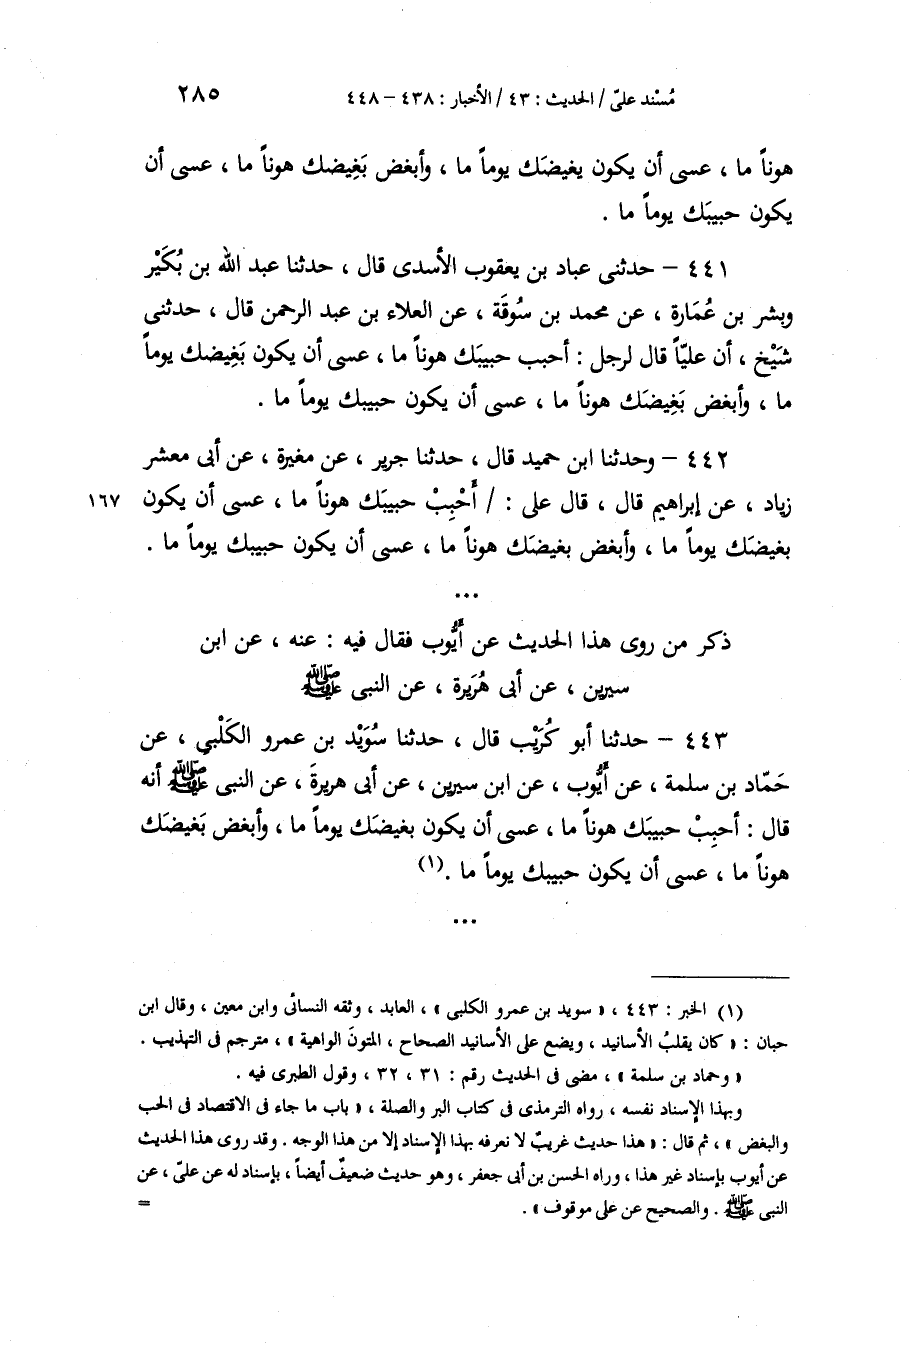 مُسْند علىّ / الحديث : ٤٣ / الأخبار : ٤٣٨ – ٤٤٨ ٢٨٥
هوناً ما ، عسى أن يكون بغيضَك يوماً ما ، وأبغض بَغِيضك هوناً ما ، عسى أن
يكون حبيبَك يوماً ما .
٤٤١ – حدثنى عباد بن يعقوب الأسدى قال ، حدثنا عبد الله بن بُكَيْر
وبشر بن عُمَارة ، عن محمد بن سُوقَة ، عن العلاء بن عبد الرحمن قال ، حدثنى
شَيْخ ، أن عليّاً قال لرجل : أحبب حبيبَك هوناً ما ، عسى أن يكون بَغِيضك يوماً
ما ، وأبغض بَغِيضَك هوناً ما ، عسى أن يكون حبيبك يوماً ما .
٤٤٢ – وحدثنا ابن حميد قال ، حدثنا جرير ، عن مغيرة ، عن أبى معشر
زياد ، عن إبراهيم قال ، قال على : / أَحْبِبْ حبيبَك هوناً ما ، عسى أن يكون ١٦٧
بغيضَك يوماً ما ، وأبغض بغيضَك هوناً ما ، عسى أن يكون حبيبك يوماً ما .
...
ذكر من روى هذا الحديث عن أيُّوب فقال فيه : عنه ، عن ابن
سيرين ، عن أبى هُرَيرة ، عن النبى ﷺ
٤٤٣ – حدثنا أبو كُرَيْب قال ، حدثنا سُوَيْد بن عمرو الكَلْبي ، عن
حَمّاد بن سلمة ، عن أيُّوب ، عن ابن سيرين ، عن أبى هريرةَ ، عن النبى ﷺ أنه
قال : أحبِبْ حبيبَك هوناً ما ، عسى أن يكون بغيضَك يوماً ما ، وأبغض بَغيضَك
هوناً ما ، عسى أن يكون حبيبك يوماً ما .(١)
...
(١) الخبر : ٤٤٣ ، « سويد بن عمرو الكلبى » ، العابد ، وثقه النسائى وابن معين ، وقال ابن
حبان : « كان يقلبُ الأسانيد ، ويضع على الأسانيد الصحاح ، المتونَ الواهية » ، مترجم فى التهذيب .
« وحماد بن سلمة » ، مضى فى الحديث رقم : ٣١ ، ٣٢ ، وقول الطبرى فيه .
وبهذا الإسناد نفسه ، رواه الترمذى فى كتاب البر والصلة ، « باب ما جاء فى الاقتصاد فى الحب
والبغض » ، ثم قال : « هذا حديث غريبٌ لا نعرفه بهذا الإسناد إلا من هذا الوجه . وقد روى هذا الحديث
عن أيوب بإسناد غير هذا ، وراه الحسن بن أبى جعفر ، وهو حديث ضعيفٌ أيضاً ، بإسناد له عن علىّ ، عن
النبى ﷺ . والصحيح عن على موقوف » . =